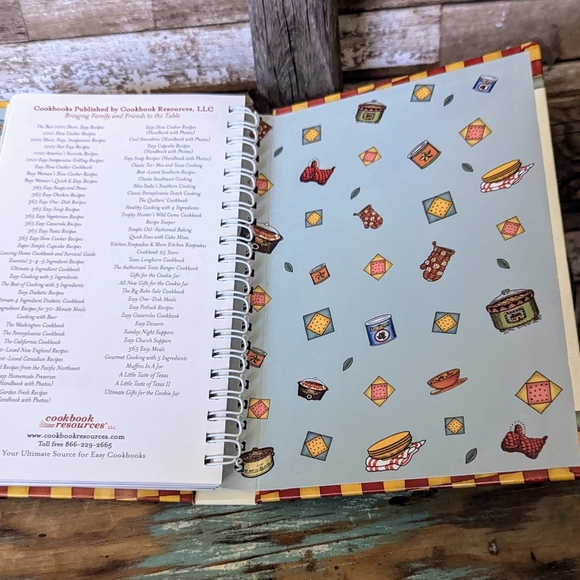 Cookbooks Published by Cookbook Resources, LLC
Bringing Family and Friends to the Table
The Best 1001 Short, Easy Recipes
1001 Slow Cooker Recipes
1001 Short, Easy, Inexpensive Recipes
1001 Fast Easy Recipes
1001 America's Favorite Recipes
1001 Easy Inexpensive Grilling Recipes
Easy Slow Cooker Cookbook
Busy Woman's Slow Cooker Recipes
Busy Woman's Quick & Easy Recipes
365 Easy Soups and Stews
365 Easy Chicken Recipes
365 Easy One-Dish Recipes
365 Easy Soup Recipes
365 Easy Vegetarian Recipes
365 Easy Casserole Recipes
365 Easy Pasta Recipes
365 Easy Slow Cooker Recipes
Super Simple Cupcake Recipes
Leaving Home Cookbook and Survival Guide
Essential 3-4-5 Ingredient Recipes
Ultimate 4 Ingredient Cookbook
Easy Cooking with 5 Ingredients
The Best of Cooking with 3 Ingredients
Easy Diabetic Recipes
4 Ingredient Diabetic Cookbook
Recipes for 30-Minute Meals
Cooking with Beer
The Washington Cookbook
The Pennsylvania Cookbook
The California Cookbook
-Loved New England Recipes
-Loved Canadian Recipes
Recipes from the Pacific Northwest
Homemade Preserves
(Handbook with Photos)
Garden Fresh Recipes
(Handbook with Photos)
Easy Slow Cooker Recipes
(Handbook with Photos)
Cool Smoothies (Handbook with Photos)
Easy Cupcake Recipes
(Handbook with Photos)
Easy Soup Recipes (Handbook with Photos)
Classic Tex-Mex and Texas Cooking
Best-Loved Southern Recipes
Classic Southwest Cooking
Miss Sadie's Southern Cooking
Classic Pennsylvania Dutch Cooking
The Quilters' Cookbook
Healthy Cooking with 4 Ingredients
Trophy Hunter's Wild Game Cookbook
Recipe Keeper
Simple Old-Fashioned Baking
Quick Fixes with Cake Mixes
Kitchen Keepsakes & More Kitchen Keepsakes
Cookbook 25 Years
Texas Longhorn Cookbook
The Authorized Texas Ranger Cookbook
Gifts for the Cookie Jar
All New Gifts for the Cookie Jar
The Big Bake Sale Cookbook
Easy One-Dish Meals
Easy Potluck Recipes
Easy Casseroles Cookbook
Easy Desserts
Sunday Night Suppers
Easy Church Suppers
365 Easy Meals
Gourmet Cooking with 5 Ingredients
Muffins In A Jar
A Little Taste of Texas
A Little Taste of Texas II
Ultimate Gifts for the Cookie Jar
cookbook
resources LLC
www.cookbookresources.com
Toll free 866-229-2665
Your Ultimate Source for Easy Cookbooks